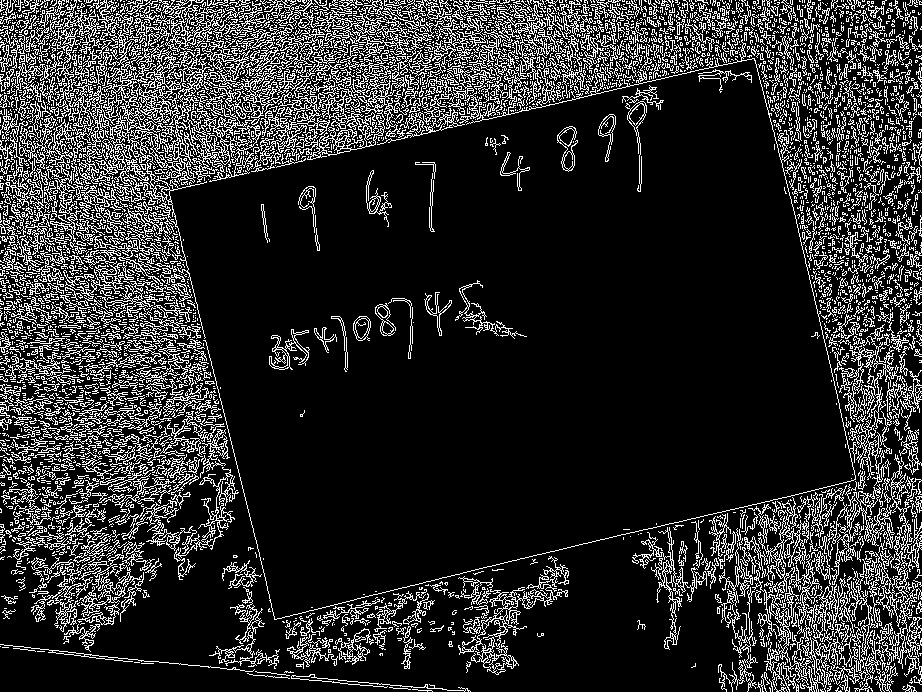 1967 4899
354708745